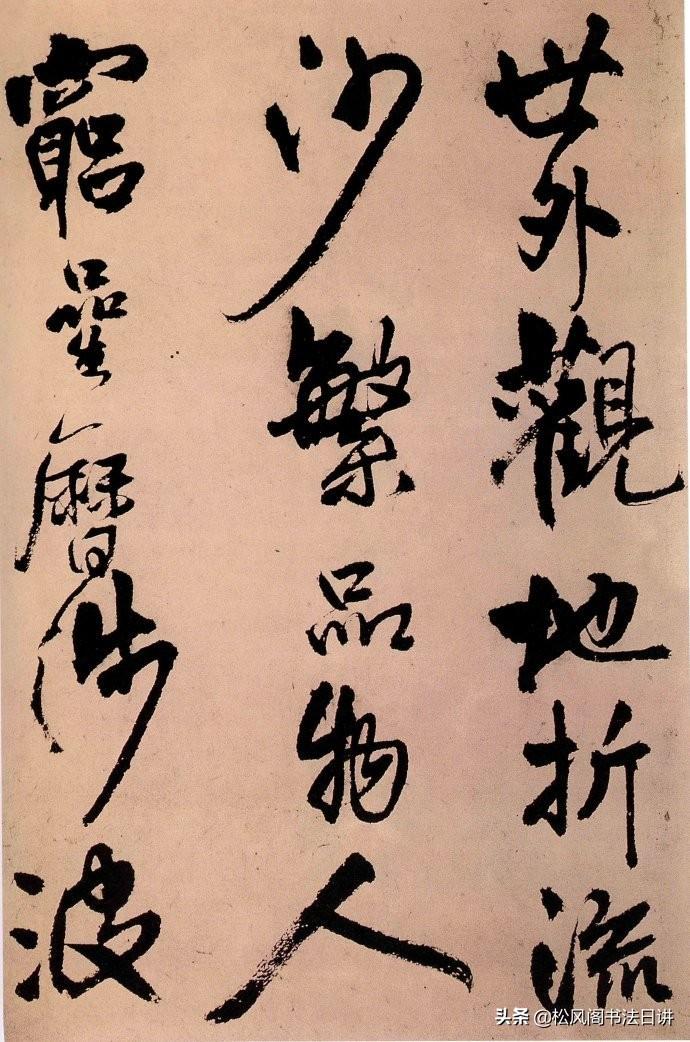 世外觀地折流
沙繁品物人
竆曐曆涉波
头条 @松风阁书法日讲